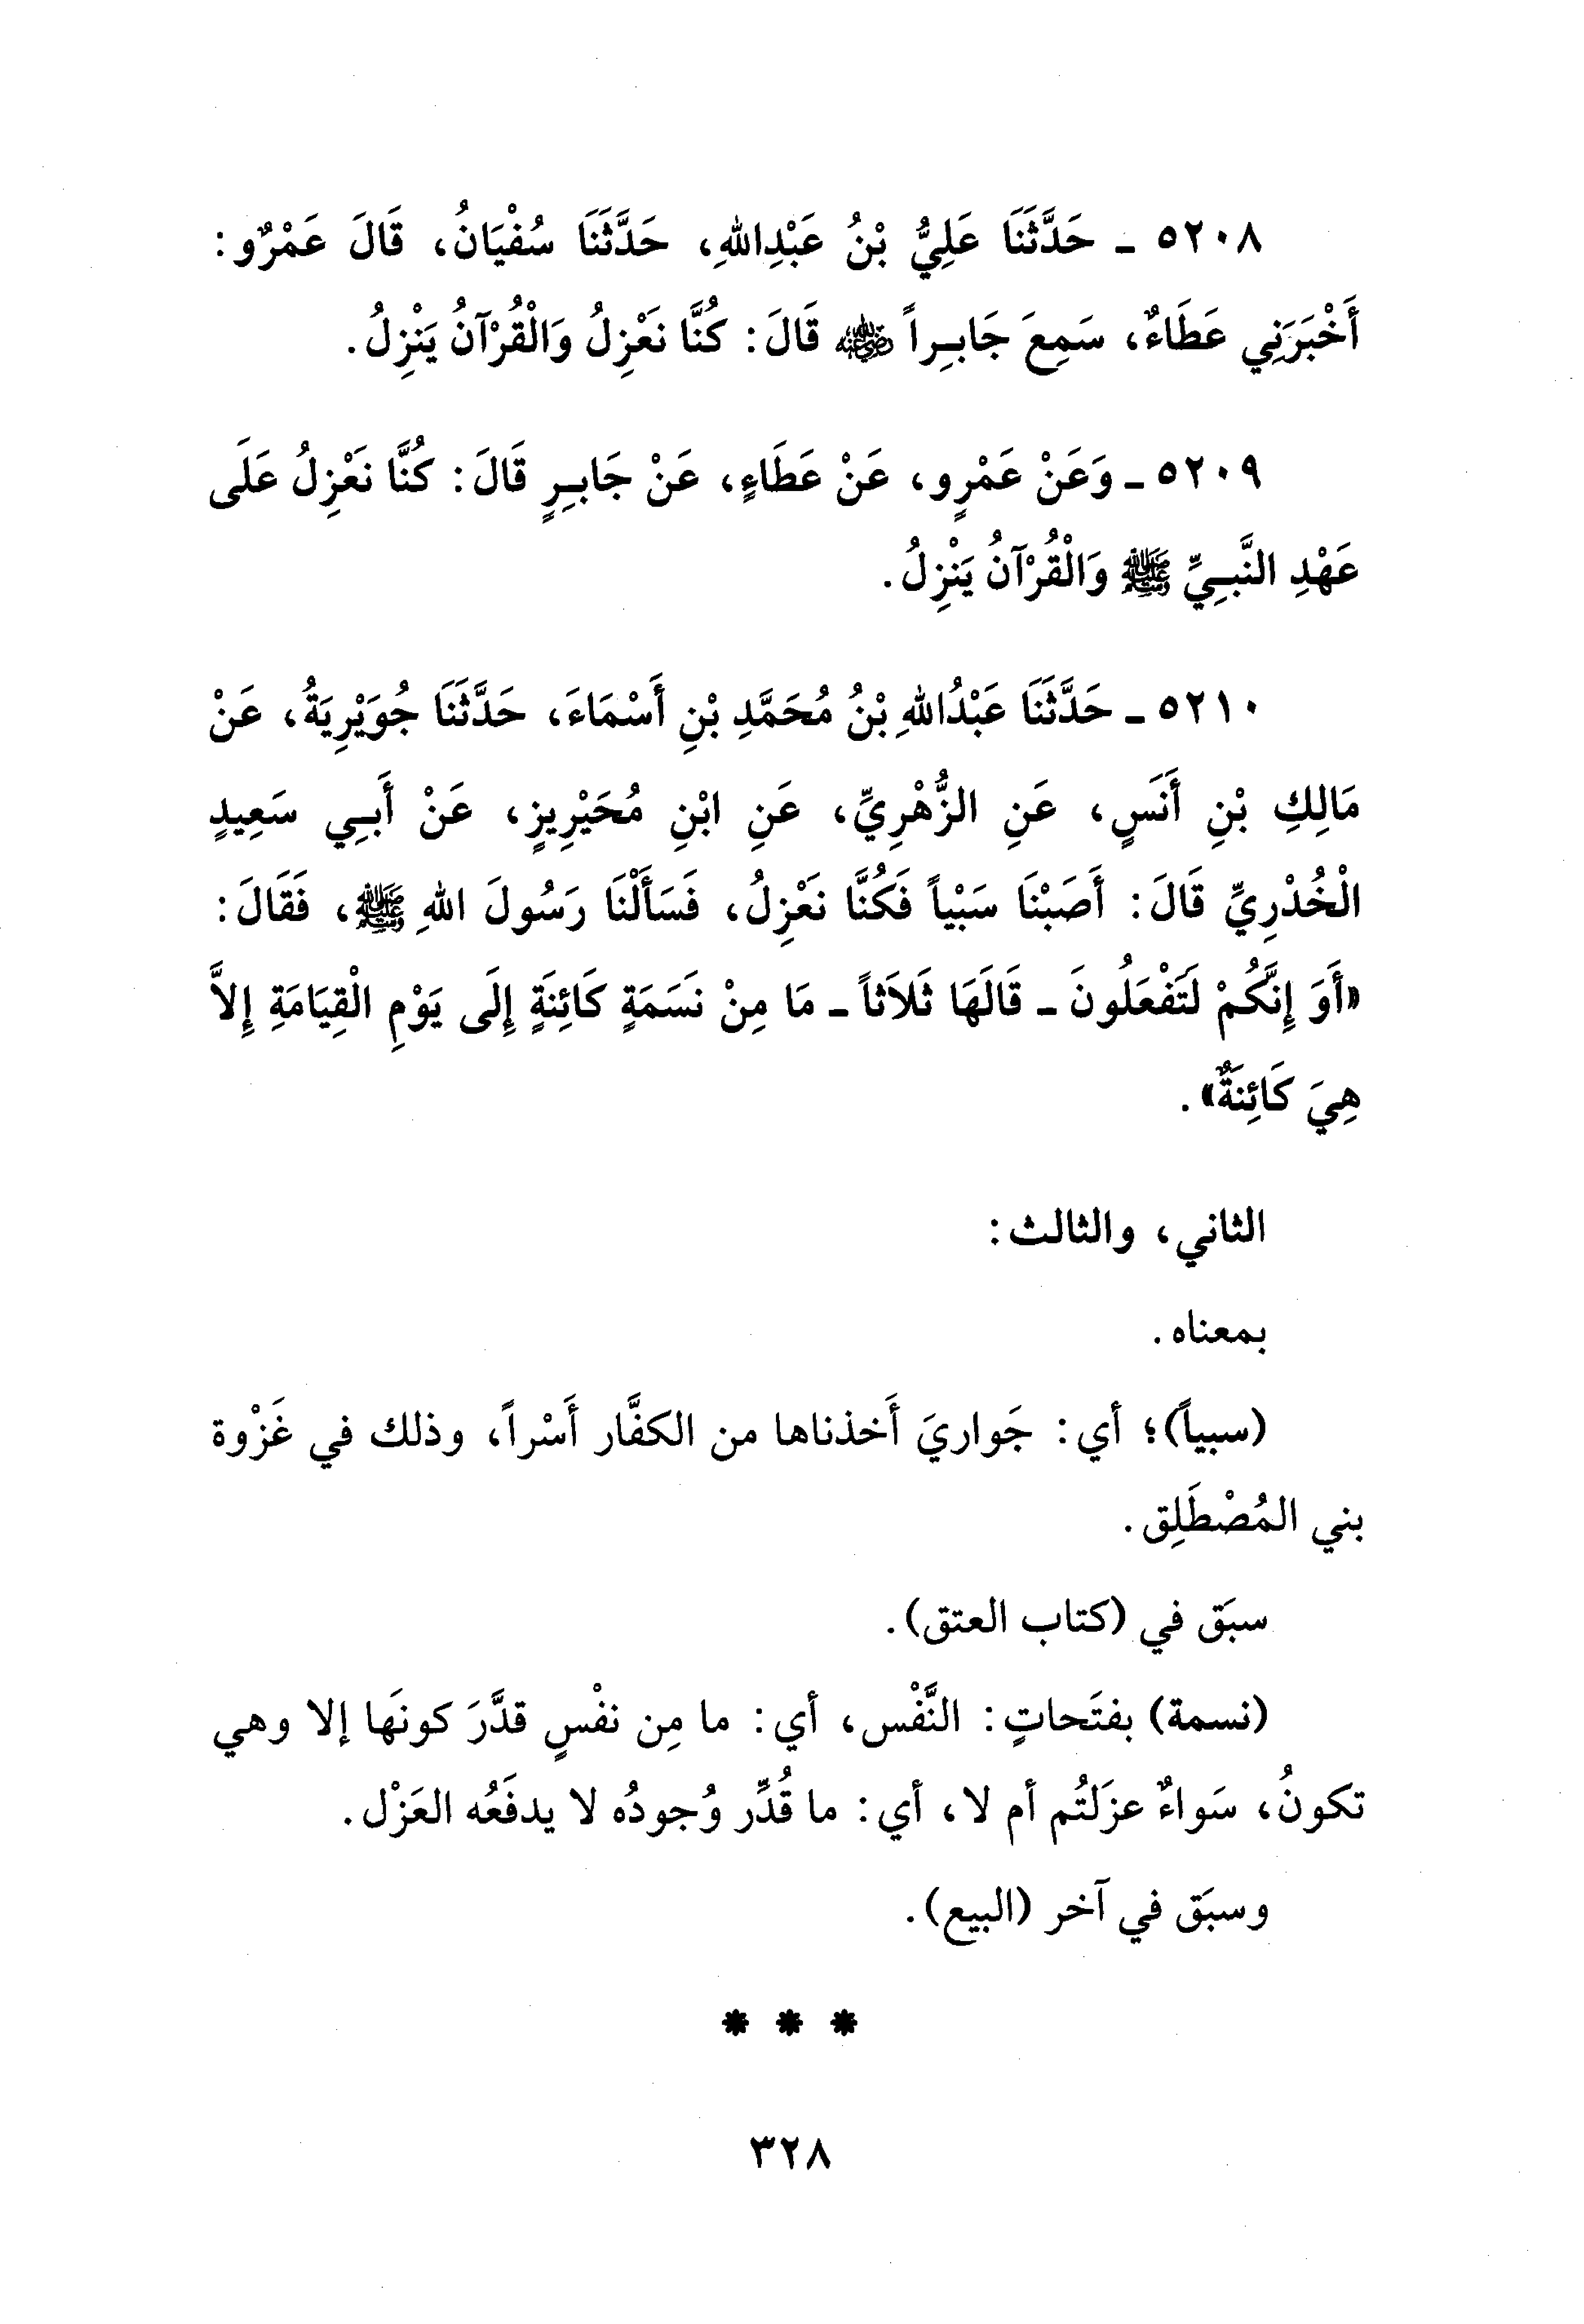 ٥٢٠٨ ـ حَدَّثَنَا عَلِيُّ بْنُ عَبْدِاللهِ، حَدَّثَنَا سُفْيَانُ، قَالَ عَمْرٌو:
أَخْبَرَنِي عَطَاءٌ، سَمِعَ جَابِراً رضي الله عنه قَالَ: كُنَّا نَعْزِلُ وَالْقُرْآنُ يَنْزِلُ.
٥٢٠٩ ـ وَعَنْ عَمْرٍو، عَنْ عَطَاءٍ، عَنْ جَابِرٍ قَالَ: كُنَّا نَعْزِلُ عَلَى
عَهْدِ النَّبِيِّ ﷺ وَالْقُرْآنُ يَنْزِلُ.
٥٢١٠ ـ حَدَّثَنَا عَبْدُاللهِ بْنُ مُحَمَّدِ بْنِ أَسْمَاءَ، حَدَّثَنَا جُوَيْرِيَةُ، عَنْ
مَالِكِ بْنِ أَنَسٍ، عَنِ الزُّهْرِيِّ، عَنِ ابْنِ مُحَيْرِيزٍ، عَنْ أَبِي سَعِيدٍ
الْخُدْرِيِّ قَالَ: أَصَبْنَا سَبْياً فَكُنَّا نَعْزِلُ، فَسَأَلْنَا رَسُولَ اللهِ ﷺ، فَقَالَ:
«أَوَ إِنَّكُمْ لَتَفْعَلُونَ ـ قَالَهَا ثَلاَثاً ـ مَا مِنْ نَسَمَةٍ كَائِنَةٍ إِلَى يَوْمِ الْقِيَامَةِ إِلاَّ
هِيَ كَائِنَةٌ».
الثاني، والثالث:
بمعناه.
(سبياً)؛ أي: جَواريَ أَخذناها من الكفَّار أَسْراً، وذلك في غَزْوة
بني المُصْطَلِق.
سبَق في (كتاب العتق).
(نسمة) بفتَحاتٍ: النَّفْس، أي: ما مِن نفْسٍ قدَّرَ كونَها إلا وهي
تكونُ، سَواءٌ عزَلتُم أم لا، أي: ما قُدِّر وُجودُه لا يدفَعُه العَزْل.
وسبَق في آخر (البيع).
* * *
٣٢٨